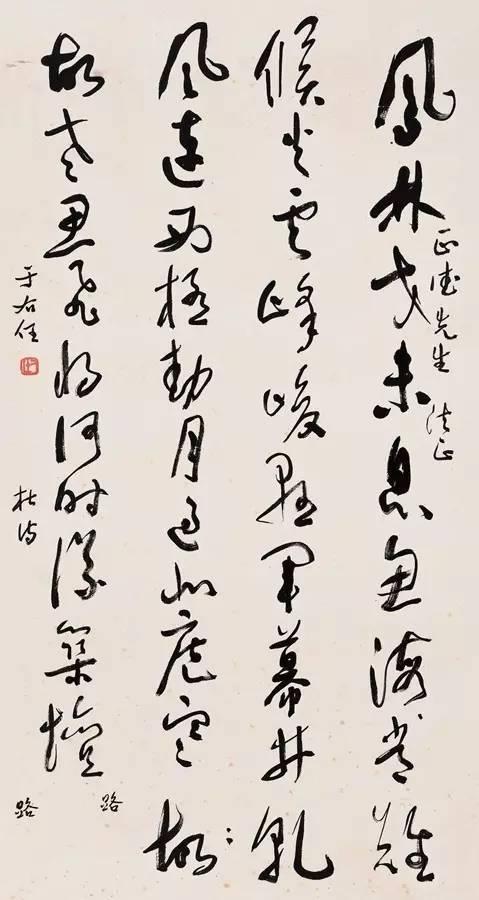 鳳林戈未息魚海常難
正 先生 法正
候火雲峰峻懸軍幕井乾
風連西極動月過北庭寒故
故老思飛將何時議築壇
路
杜詩
路
于右任